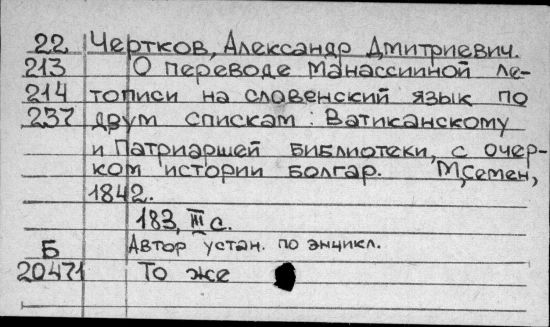 22 Чертков, Александр Дмитриевич.
213 О переводе Манассииной ле-
214 тописи на словенский язык по
237 двум спискам: Ватиканскому
и Патриаршей библиотеки, с очер-
ком истории болгар. М, Семен,
1842.
183, III с.
Б Автор устан. по энцикл.
20471 То же